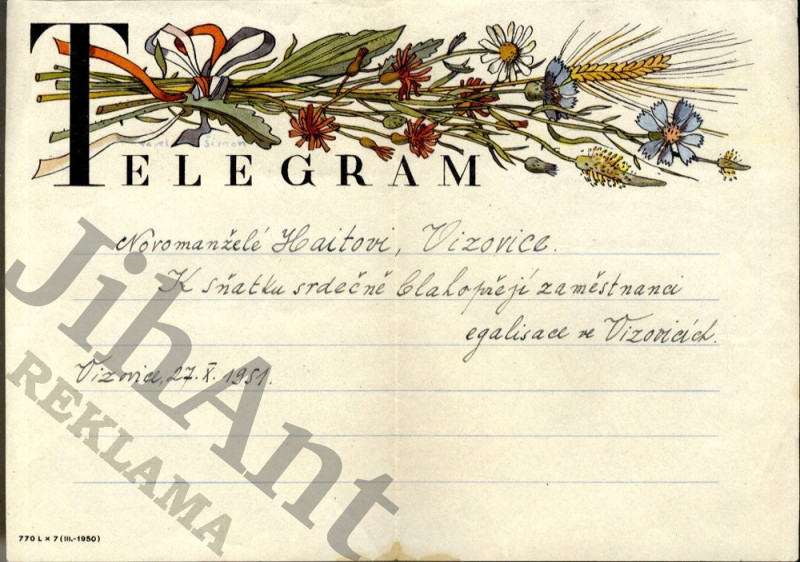 TELEGRAM
Karel Šimon
Novomanželé Haitovi, Vizovice.
K sňatku srdečně blahopřejí zaměstnanci
egalisace ve Vizovicích.
Vizovice, 27. X. 1951.
JihAnt
REKLAMA
770 L × 7 (III.-1950)